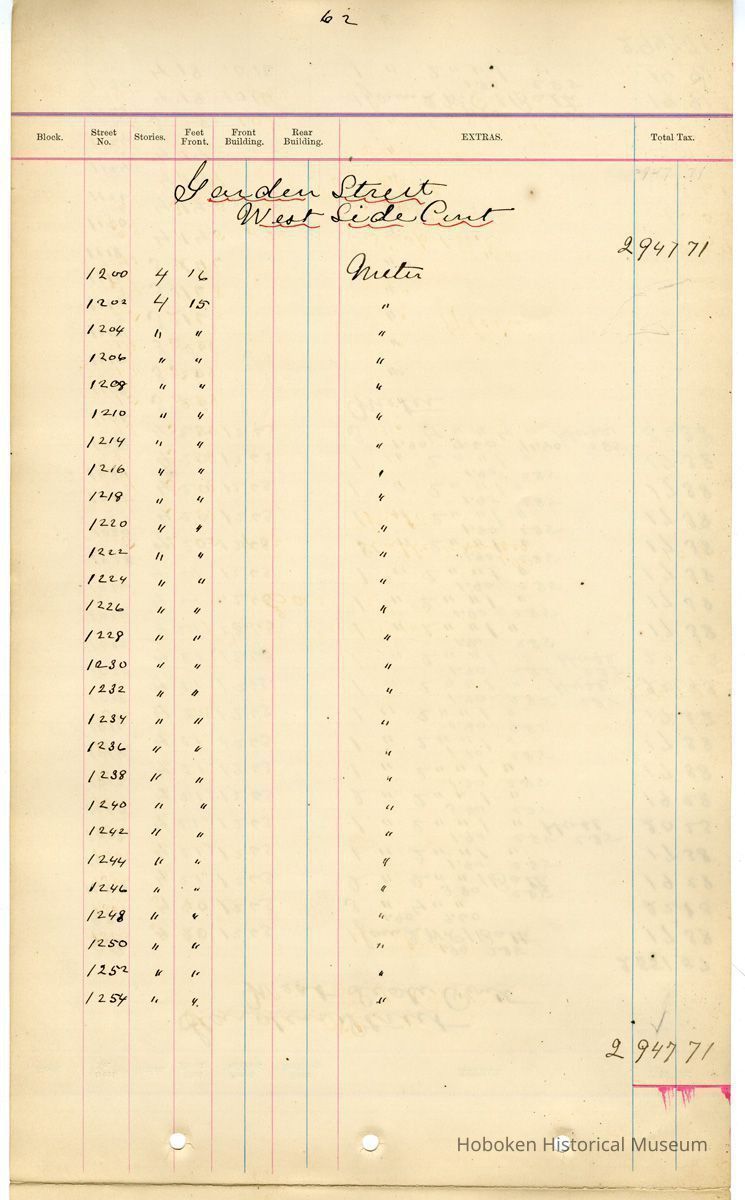 62
Block. Street No. Stories. Feet Front. Front Building. Rear Building. EXTRAS. Total Tax.
Garden Street
West Side Cont
2947 71
1200 4 16 Meter
1202 4 15 "
1204 " " "
1206 " " "
1208 " " "
1210 " " "
1214 " " "
1216 " " "
1218 " " "
1220 " " "
1222 " " "
1224 " " "
1226 " " "
1228 " " "
1230 " " "
1232 " " "
1234 " " "
1236 " " "
1238 " " "
1240 " " "
1242 " " "
1244 " " "
1246 " " "
1248 " " "
1250 " " "
1252 " " "
1254 " " "
2947 71
Hoboken Historical Museum